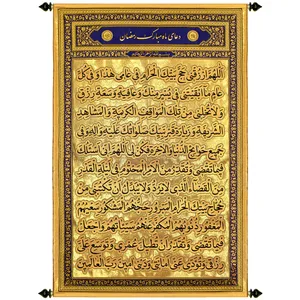 دعای ماه مبارک رمضان
اَللّهُمَّ ارْزُقْنی حَجَّ بَیْتِكَ الْحَرامِ فی عامی هذا وَ فی كُلِّ
عامٍ ما اَبْقَیْتَنی فی یُسْرٍ مِنْكَ وَ عافِیَةٍ وَ سَعَةِ رِزْقٍ
وَ لا تُخْلِنی مِنْ تِلْكَ الْمَواقِفِ الْكَریمَةِ وَ الْمَشاهِدِ
الشَّریفَةِ وَ زِیارَةِ قَبْرِ نَبِیِّكَ صَلَواتُكَ عَلَیْهِ وَ آلِهِ وَ فی
جَمیعِ حَوائِجِ الدُّنْیا وَ الْآخِرَةِ فَكُنْ لی اَللّهُمَّ اِنّی اَسْئَلُكَ
فیما تَقْضی وَ تُقَدِّرُ مِنَ الْاَمْرِ الْمَحْتُومِ فی لَیْلَةِ الْقَدْرِ
مِنَ الْقَضاءِ الَّذی لا یُرَدُّ وَ لا یُبَدَّلُ اَنْ تَكْتُبَنی مِنْ
حُجّاجِ بَیْتِكَ الْحَرامِ الْمَبْرُورِ حَجُّهُمْ الْمَشْكُورِ سَعْیُهُمْ
الْمَغْفُورِ ذُنُوبُهُمْ الْمُكَفَّرِ عَنْهُمْ سَیِّئاتُهُمْ وَ اجْعَلْ
فیما تَقْضی وَ تُقَدِّرُ اَنْ تُطیلَ عُمْری وَ تُوَسِّعَ عَلَیَّ
رِزْقی وَ تُؤَدِّیَ عَنّی اَمانَتی وَ دَیْنی آمینَ رَبَّ الْعالَمینَ